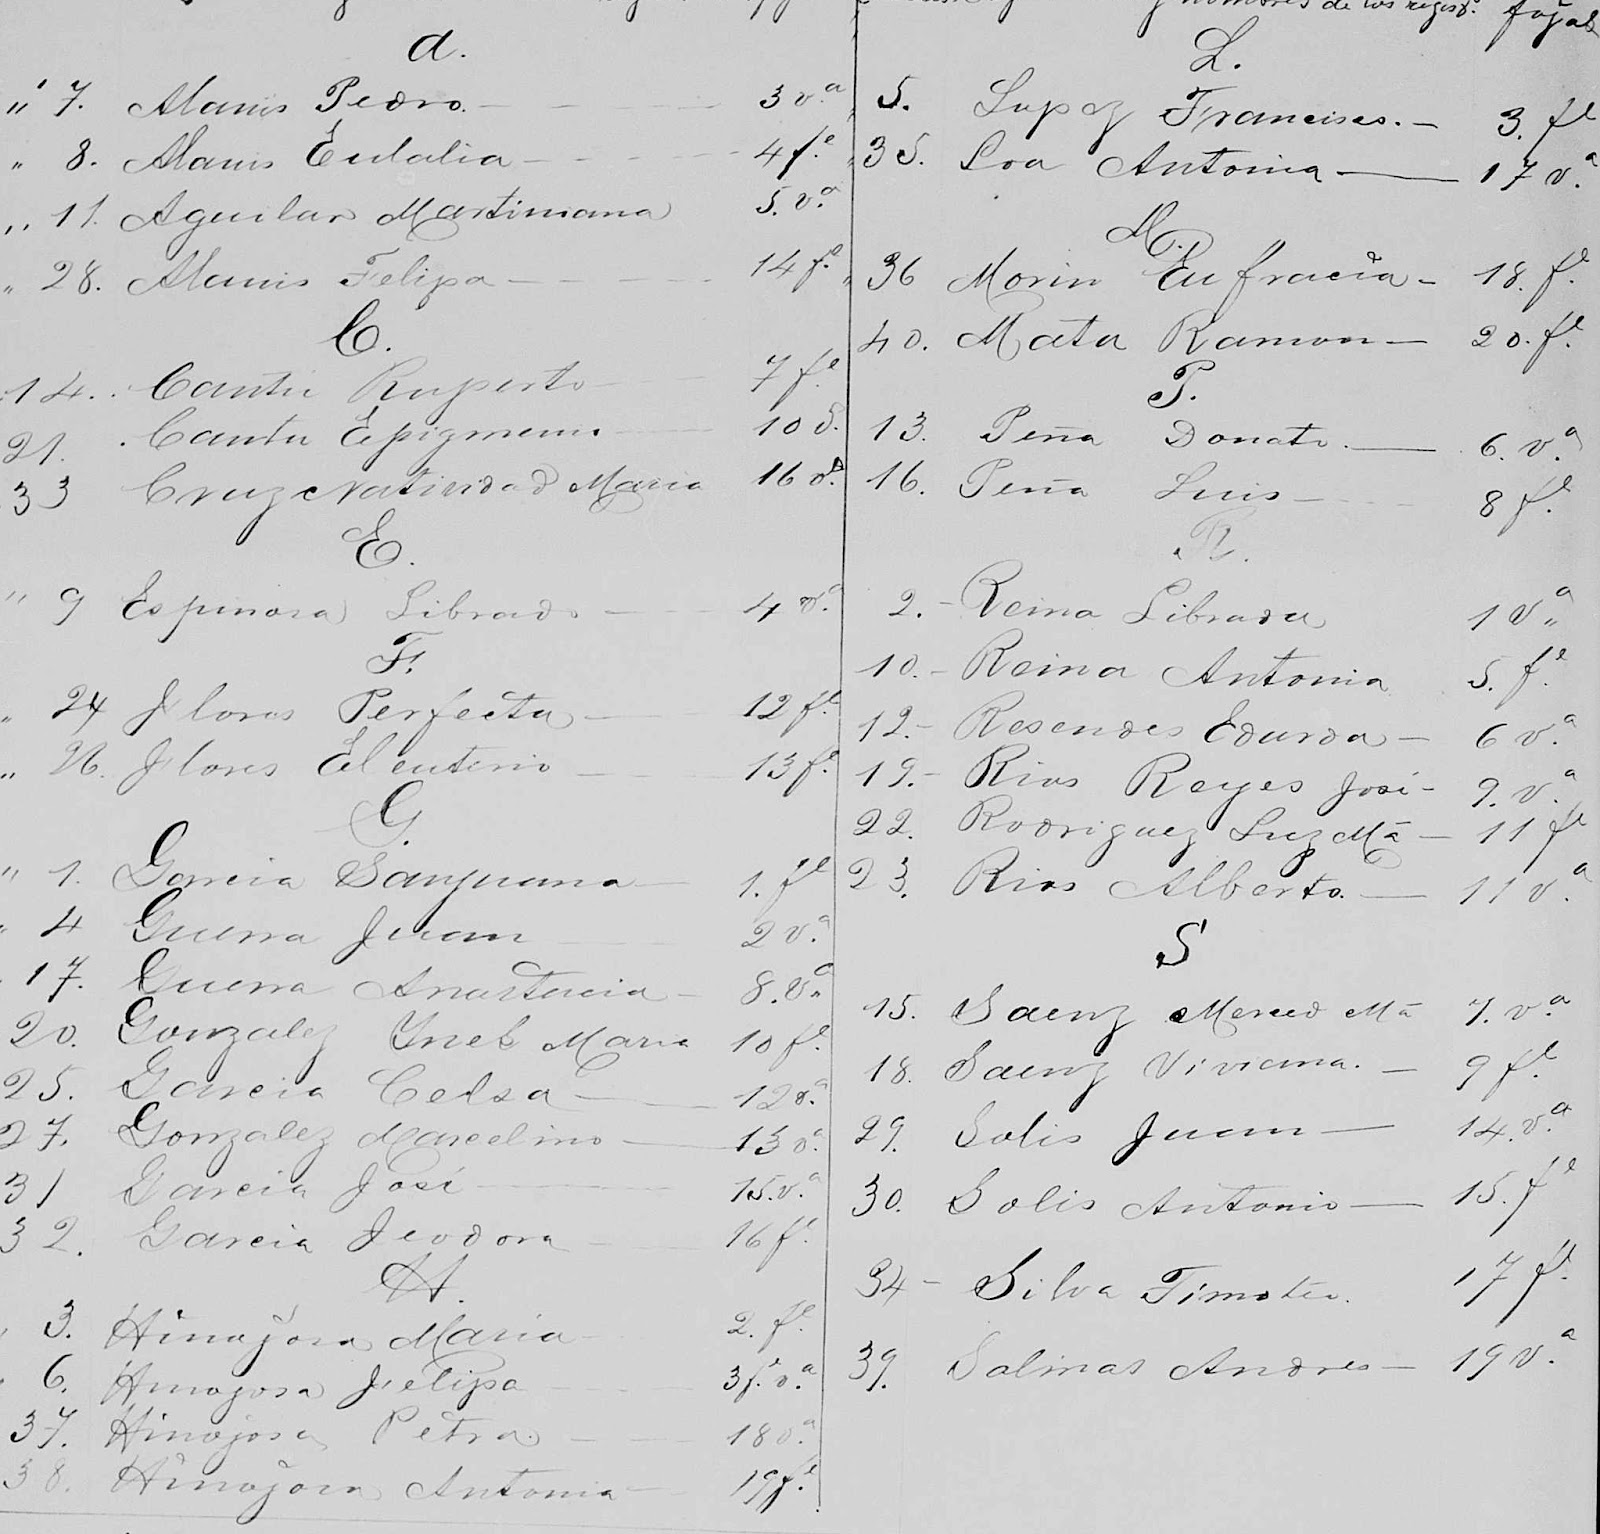 nombres de los regist.s fojas
A.
" 7. Alanis Pedro 3 v.a
" 8. Alanis Eulalia 4 f.e
" 11. Aguilar Martiniana 5. v.a
" 28. Alanis Felipa 14 f.e
C.
14. Cantu Ruperto 7 f.e
21. Cantu Epigmenio 10 v.
33 Cruz Natividad Maria 16 v.a
E.
" 9 Espinosa Librado 4 v.a
F.
" 24 Flores Perfecta 12 f.e
" 26. Flores Eleuterio 13 f.e
G.
" 1. Garcia Sanjuana 1. f.e
" 4 Guerra Juan 2 v.a
17. Guerra Anastacia 8. v.a
20. Gonzalez Ynes Maria 10 f.e
25. Garcia Celsa 12 v.a
27. Gonzalez Marcelino 13 v.a
31 Garcia José 15. v.a
32. Garcia Teodora 16 f.e
H.
3. Hinojosa Maria 2. f.e
6. Hinojosa Felipa 3 f.e v.a
37. Hinojosa Petra 18 v.a
38. Hinojosa Antonia 19 f.e
L.
5. Lupez Francisco. 3. f.e
35. Loa Antonia 17 v.a
M.
36 Morin Eufracia 18. f.e
40. Mata Ramon 20. f.e
P.
13. Peña Donato 6. v.a
16. Peña Luis 8 f.e
R.
2. Reina Librada 1 v.a
10. Reina Antonia 5. f.e
12. Resendes Eduarda 6 v.a
19. Rios Reyes José 9. v.a
22. Rodriguez Luz Mā 11 f.e
23. Rios Alberto. 11 v.a
S
15. Saenz Merced Mā 7. v.a
18. Saenz Viviana. 9 f.e
29. Solis Juan 14. v.a
30. Solis Antonio 15. f.e
34 Silva Timoteo. 17 f.e
39. Salinas Andres 19 v.a